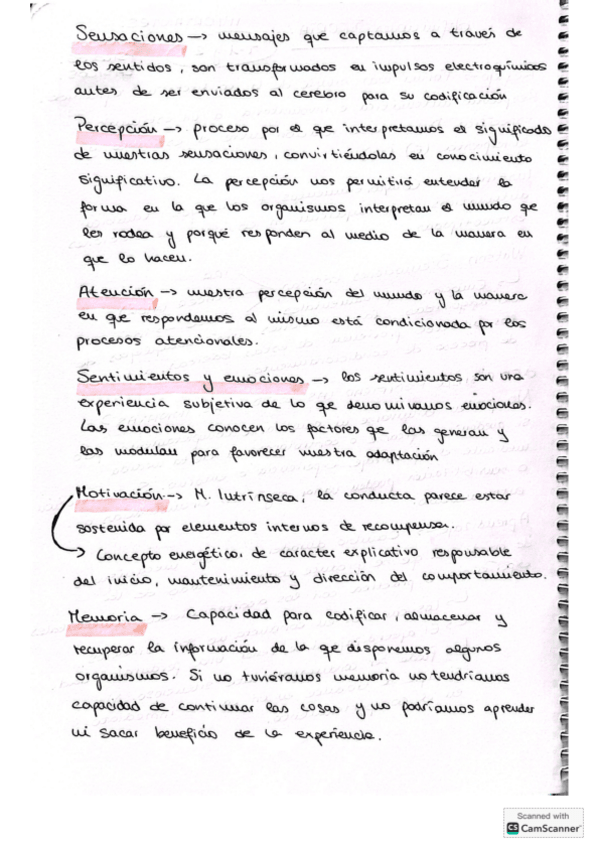 Sensaciones → mensajes que captamos a través de
los sentidos, son transformados en impulsos electroquímicos
antes de ser enviados al cerebro para su codificación
Percepción → proceso por el que interpretamos el significado
de nuestras sensaciones, convirtiéndolas en conocimiento
significativo. La percepción nos permitirá entender la
forma en la que los organismos interpretan el mundo qe
les rodea y porqué responden al medio de la manera en
que lo hacen.
Atención → nuestra percepción del mundo y la manera
en qe respondemos al mismo está condicionada por los
procesos atencionales.
Sentimientos y emociones → los sentimientos son una
experiencia subjetiva de lo qe denominamos emociones.
Las emociones conocen los factores qe las generan y
las modulan para favorecer nuestra adaptación
Motivación → M. Intrínseca, la conducta parece estar
sostenida por elementos internos de recompensa.
→ Concepto energético, de carácter explicativo responsable
del inicio, mantenimiento y dirección del comportamiento.
Memoria → Capacidad para codificar, almacenar y
recuperar la información de la qe disponemos algunos
organismos. Si no tuviéramos memoria no tendríamos
capacidad de continuar las cosas y no podríamos aprender
ni sacar beneficio de la experiencia.
Scanned with
CS CamScanner